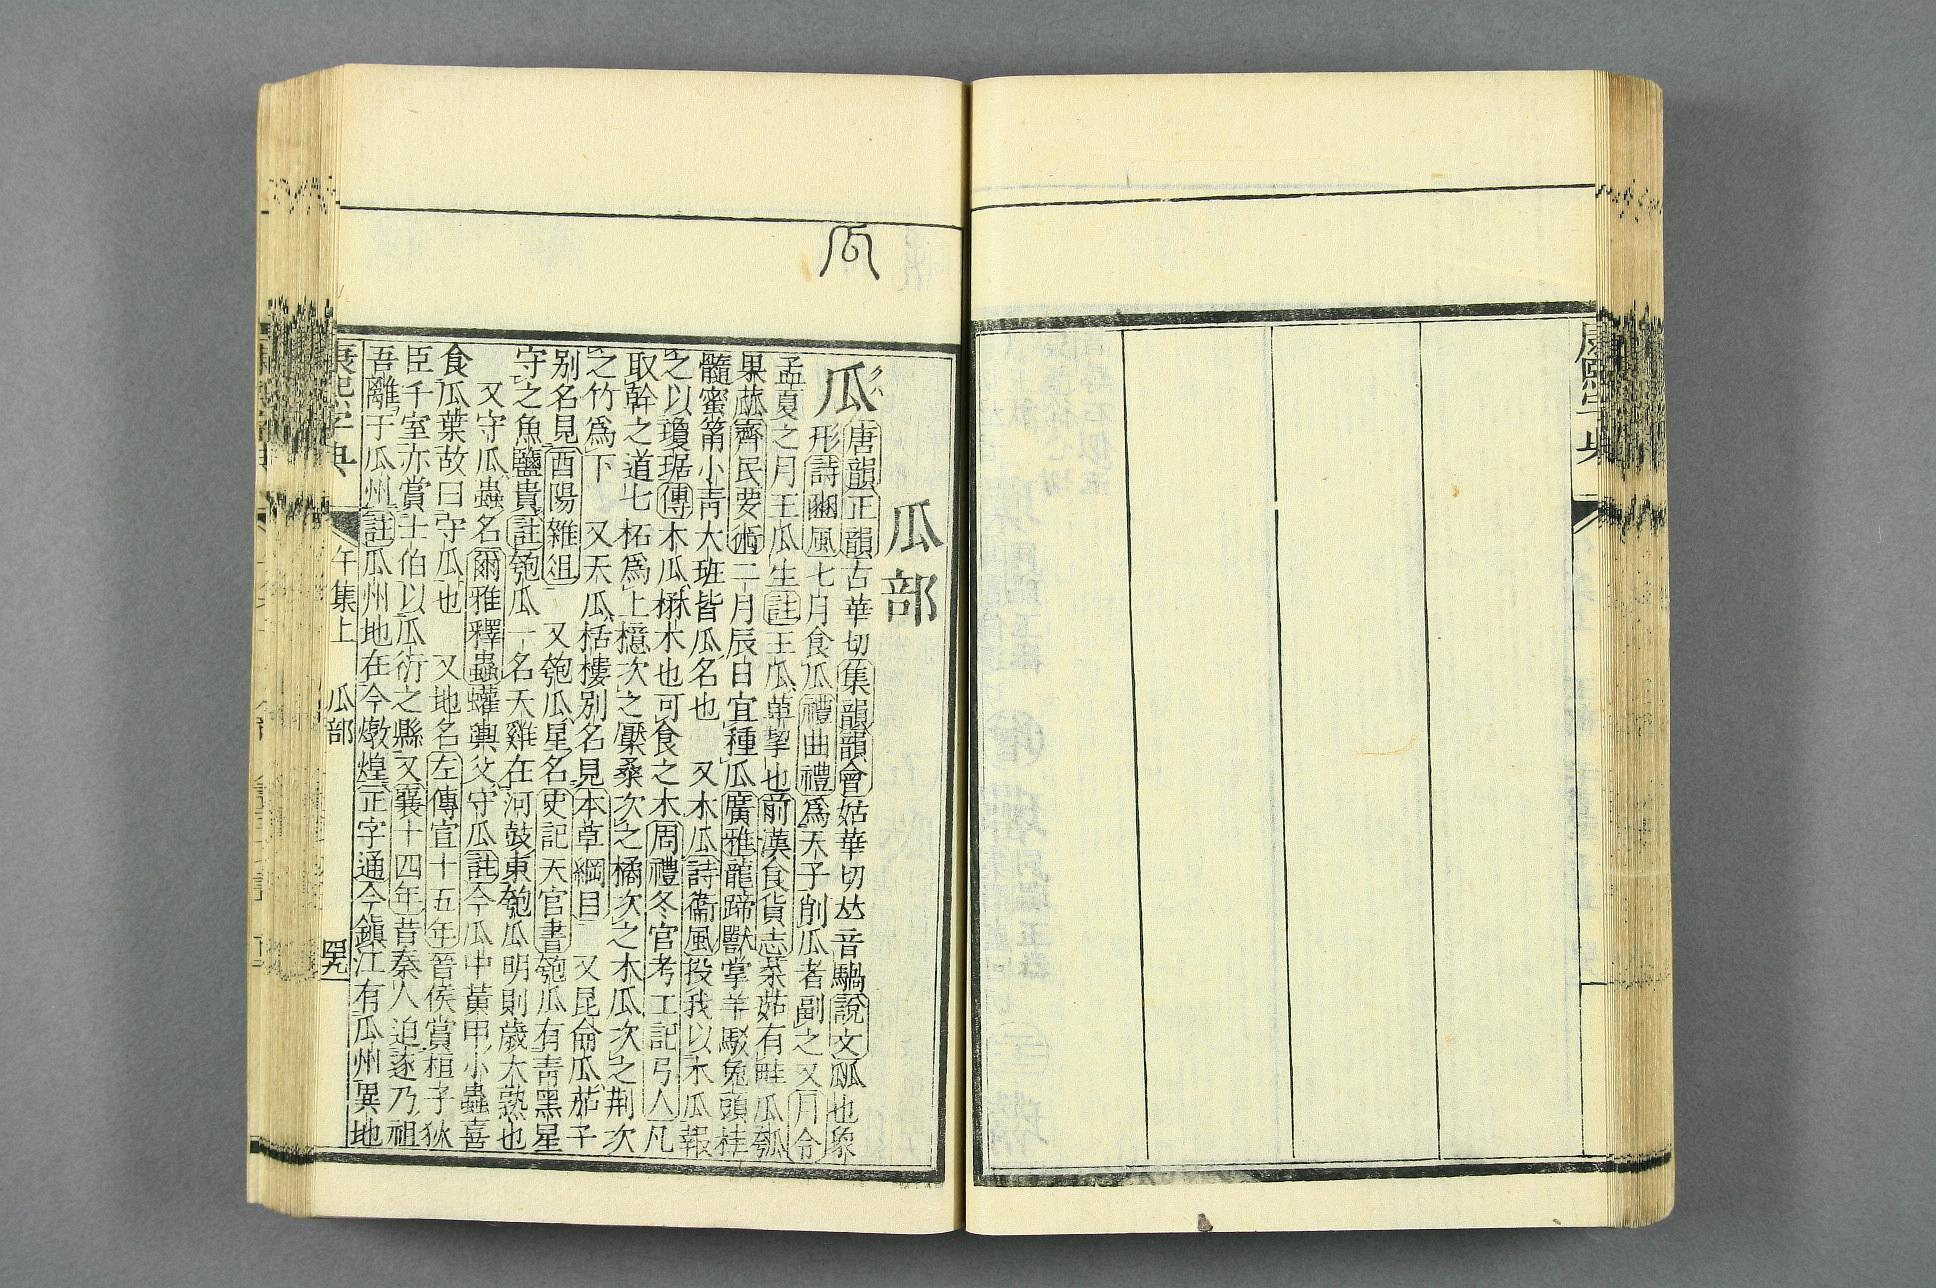 康熙字典
瓜部
瓜
唐韻正韻古華切集韻韻會姑華切𠀤音騧說文㼌也象
形詩豳風七月食瓜禮曲禮爲天子削瓜者副之又月令
孟夏之月王瓜生註王瓜萆挈也前漢食貨志菜茹有畦瓜瓠
果蓏齊民要術二月辰日宜種瓜廣雅龍蹄獸掌羊駮兔頭桂
髓蜜筩小靑大班皆瓜名也 又木瓜詩衞風投我以木瓜報
之以瓊琚傳木瓜楙木也可食之木周禮冬官考工記弓人凡
取幹之道七柘爲上檍次之檿桑次之橘次之木瓜次之荆次
之竹爲下 又天瓜栝樓別名見本草綱目 又昆侖瓜茄子
別名見酉陽雜俎 又匏瓜星名史記天官書匏瓜有靑黑星
守之魚鹽貴註匏瓜一名天雞在河鼓東匏瓜明則歲大熟也
又守瓜蟲名爾雅釋蟲蠸輿父守瓜註今瓜中黃甲小蟲喜
食瓜葉故曰守瓜也 又地名左傳宣十五年晉侯賞桓子狄
臣千室亦賞士伯以瓜衍之縣又襄十四年昔秦人迫逐乃祖
吾離于瓜州註瓜州地在今燉煌正字通今鎭江有瓜州異地
康熙字典 午集上 瓜部 四九